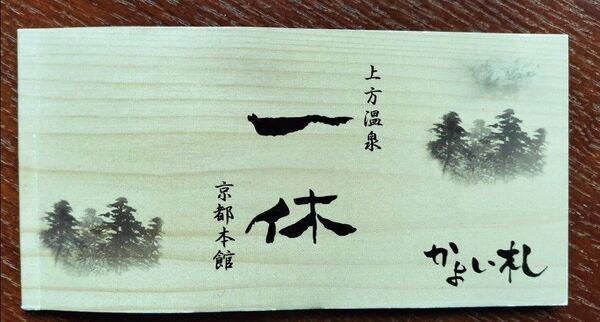 上方温泉
一休
京都本館
かよい札